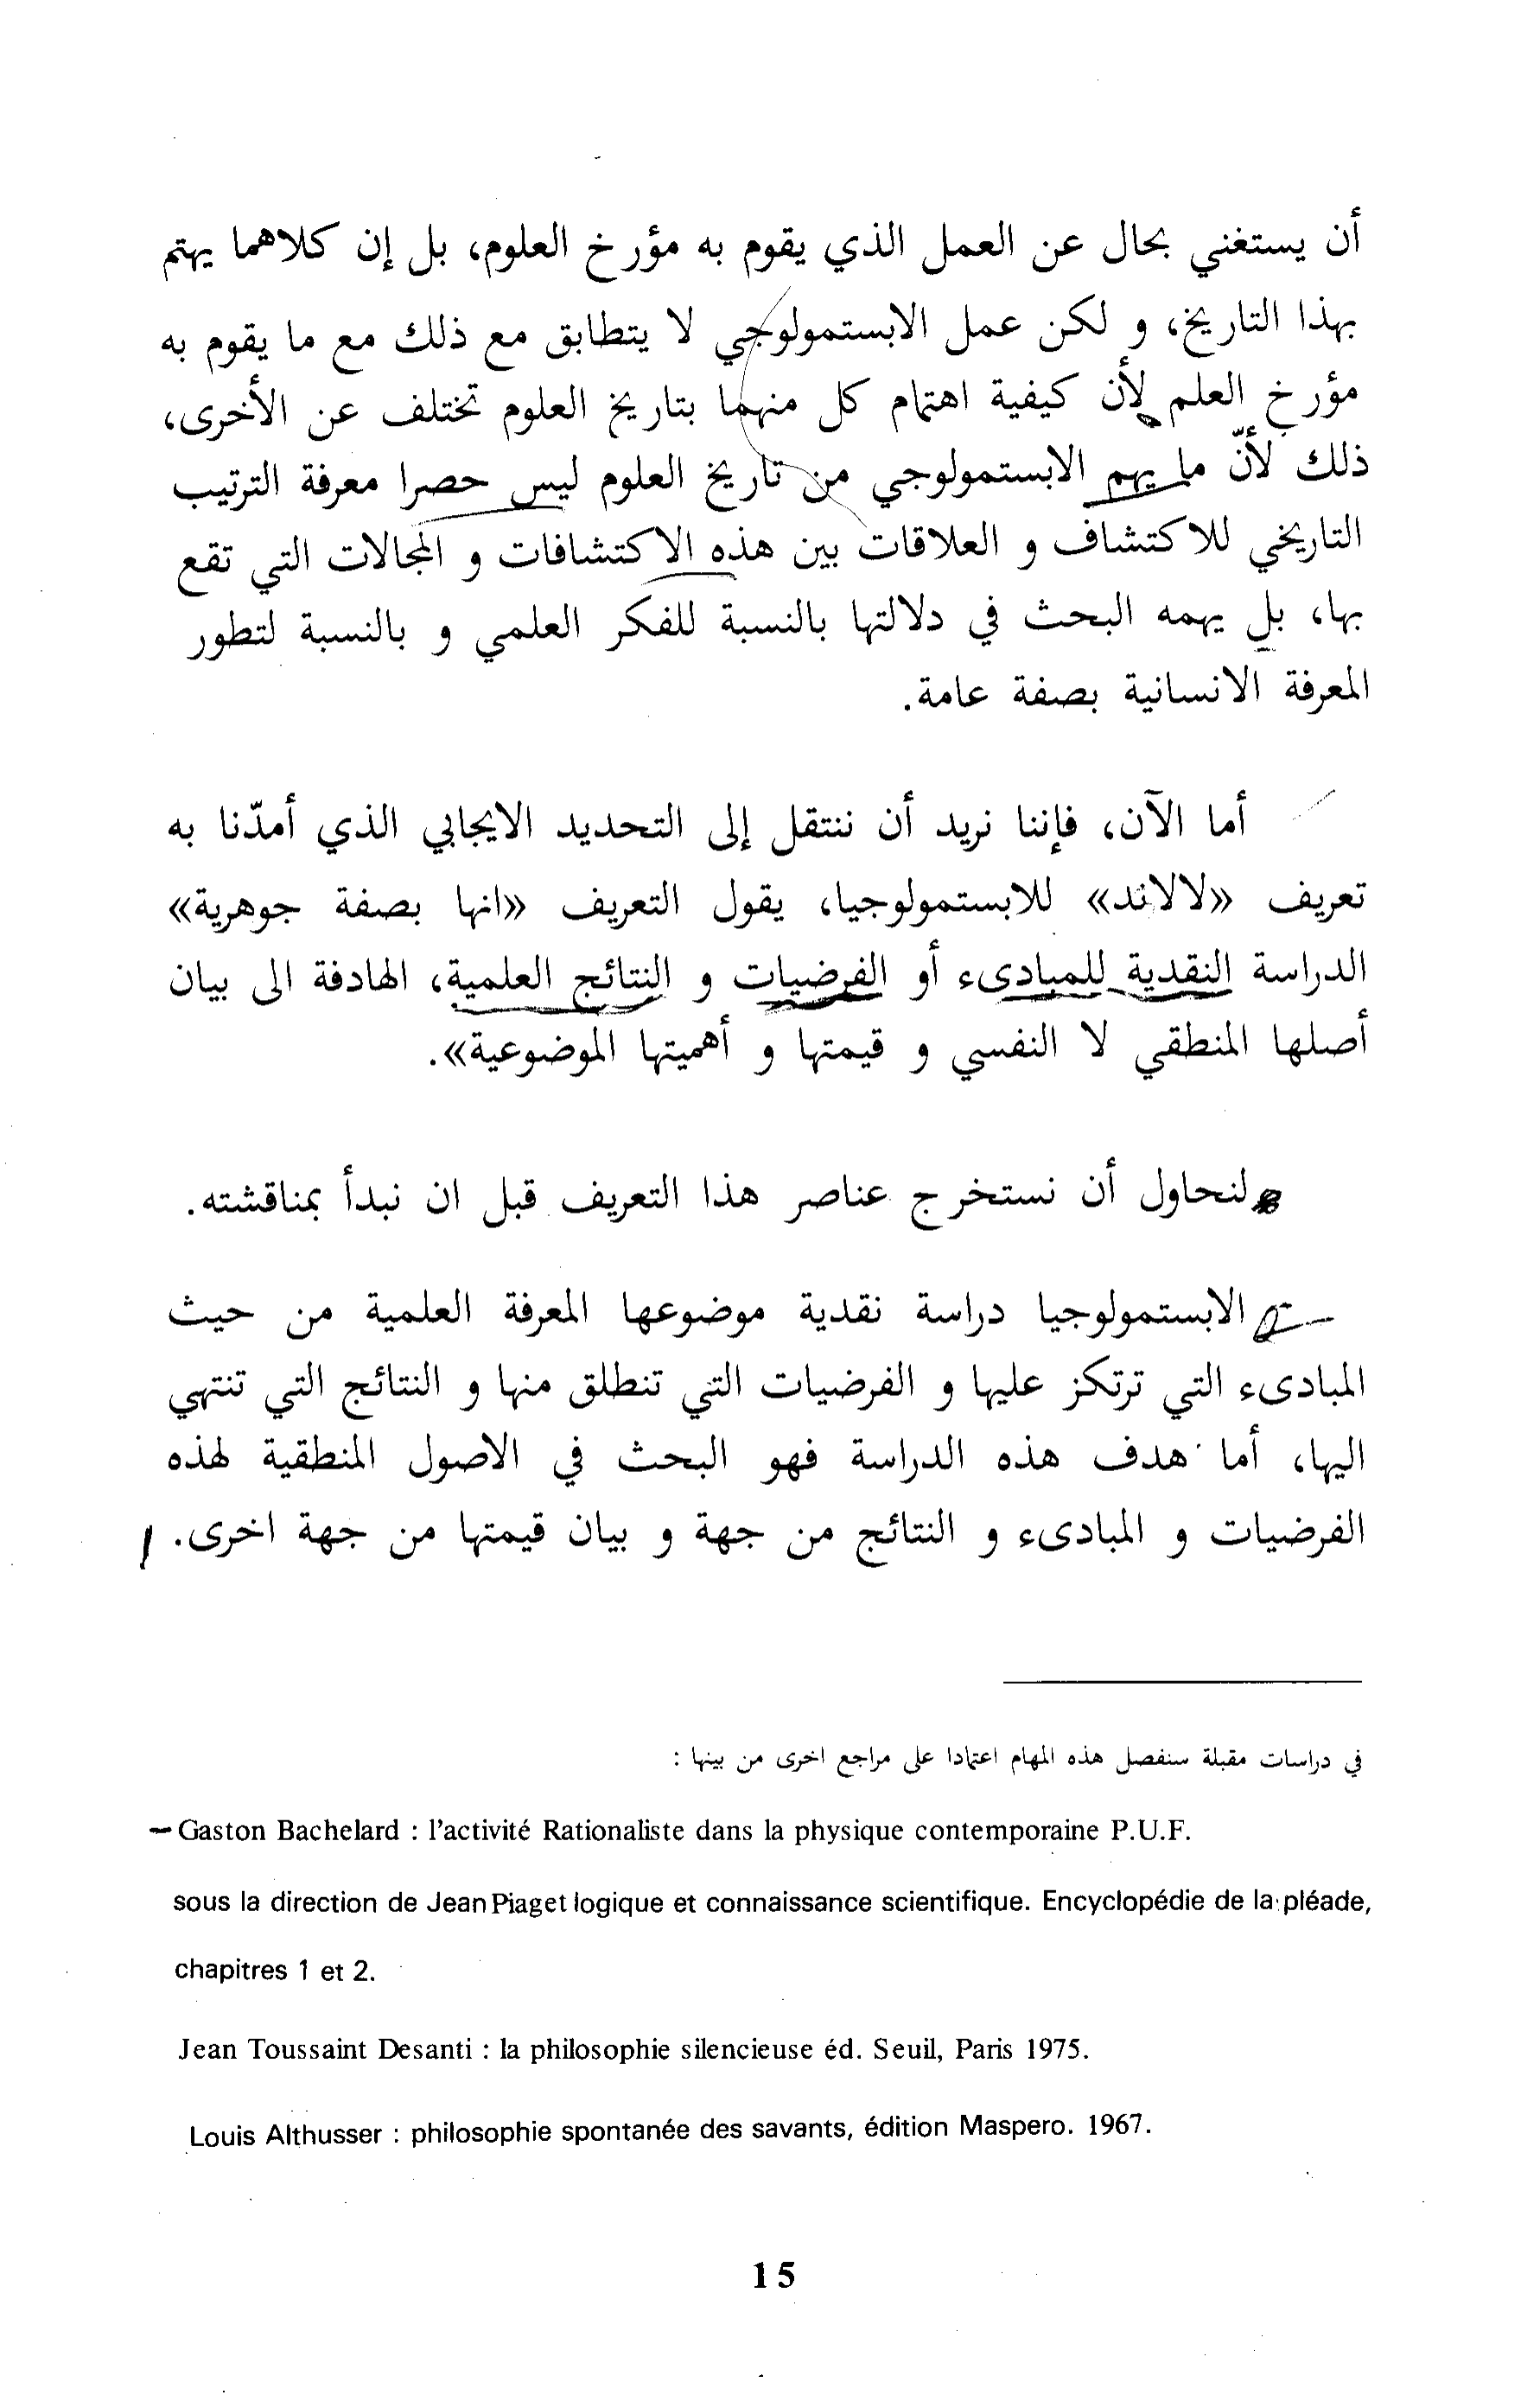 أن يستغني بحال عن العمل الذي يقوم به مؤرخ العلوم، بل إن كلاهما يهتم
بهذا التاريخ، و لكن عمل الابستمولوجي لا يتطابق مع ذلك مع ما يقوم به
مؤرخ العلم لأن كيفية اهتمام كل منهما بتاريخ العلوم تختلف عن الأخرى،
ذلك لأنّ ما يهم الابستمولوجي من تاريخ العلوم ليس حصرا معرفة الترتيب
التاريخي للاكتشاف و العلاقات بين هذه الاكتشافات و المجالات التي تقع
بها، بل يهمه البحث في دلالتها بالنسبة للفكر العلمي و بالنسبة لتطور
المعرفة الانسانية بصفة عامة.
أما الآن، فإننا نريد أن ننتقل إلى التحديد الايجابي الذي أمدّنا به
تعريف «لالاند» للابستمولوجيا، يقول التعريف «انها بصفة جوهرية»
الدراسة النقدية للمبادىء أو الفرضيات و النتائج العلمية، الهادفة الى بيان
أصلها المنطقي لا النفسي و قيمتها و أهميتها الموضوعية».
لنحاول أن نستخرج عناصر هذا التعريف قبل ان نبدأ بمناقشته.
الابستمولوجيا دراسة نقدية موضوعها المعرفة العلمية من حيث
المبادىء التي ترتكز عليها و الفرضيات التي تنطلق منها و النتائج التي تنتهي
اليها، أما هدف هذه الدراسة فهو البحث في الاصول المنطقية لهذه
الفرضيات و المبادىء و النتائج من جهة و بيان قيمتها من جهة اخرى.
في دراسات مقبلة سنفصل هذه المهام اعتمادا على مراجع اخرى من بينها :
– Gaston Bachelard : l'activité Rationaliste dans la physique contemporaine P.U.F.
sous la direction de Jean Piaget logique et connaissance scientifique. Encyclopédie de la pléade,
chapitres 1 et 2.
Jean Toussaint Desanti : la philosophie silencieuse éd. Seuil, Paris 1975.
Louis Althusser : philosophie spontanée des savants, édition Maspero. 1967.
15